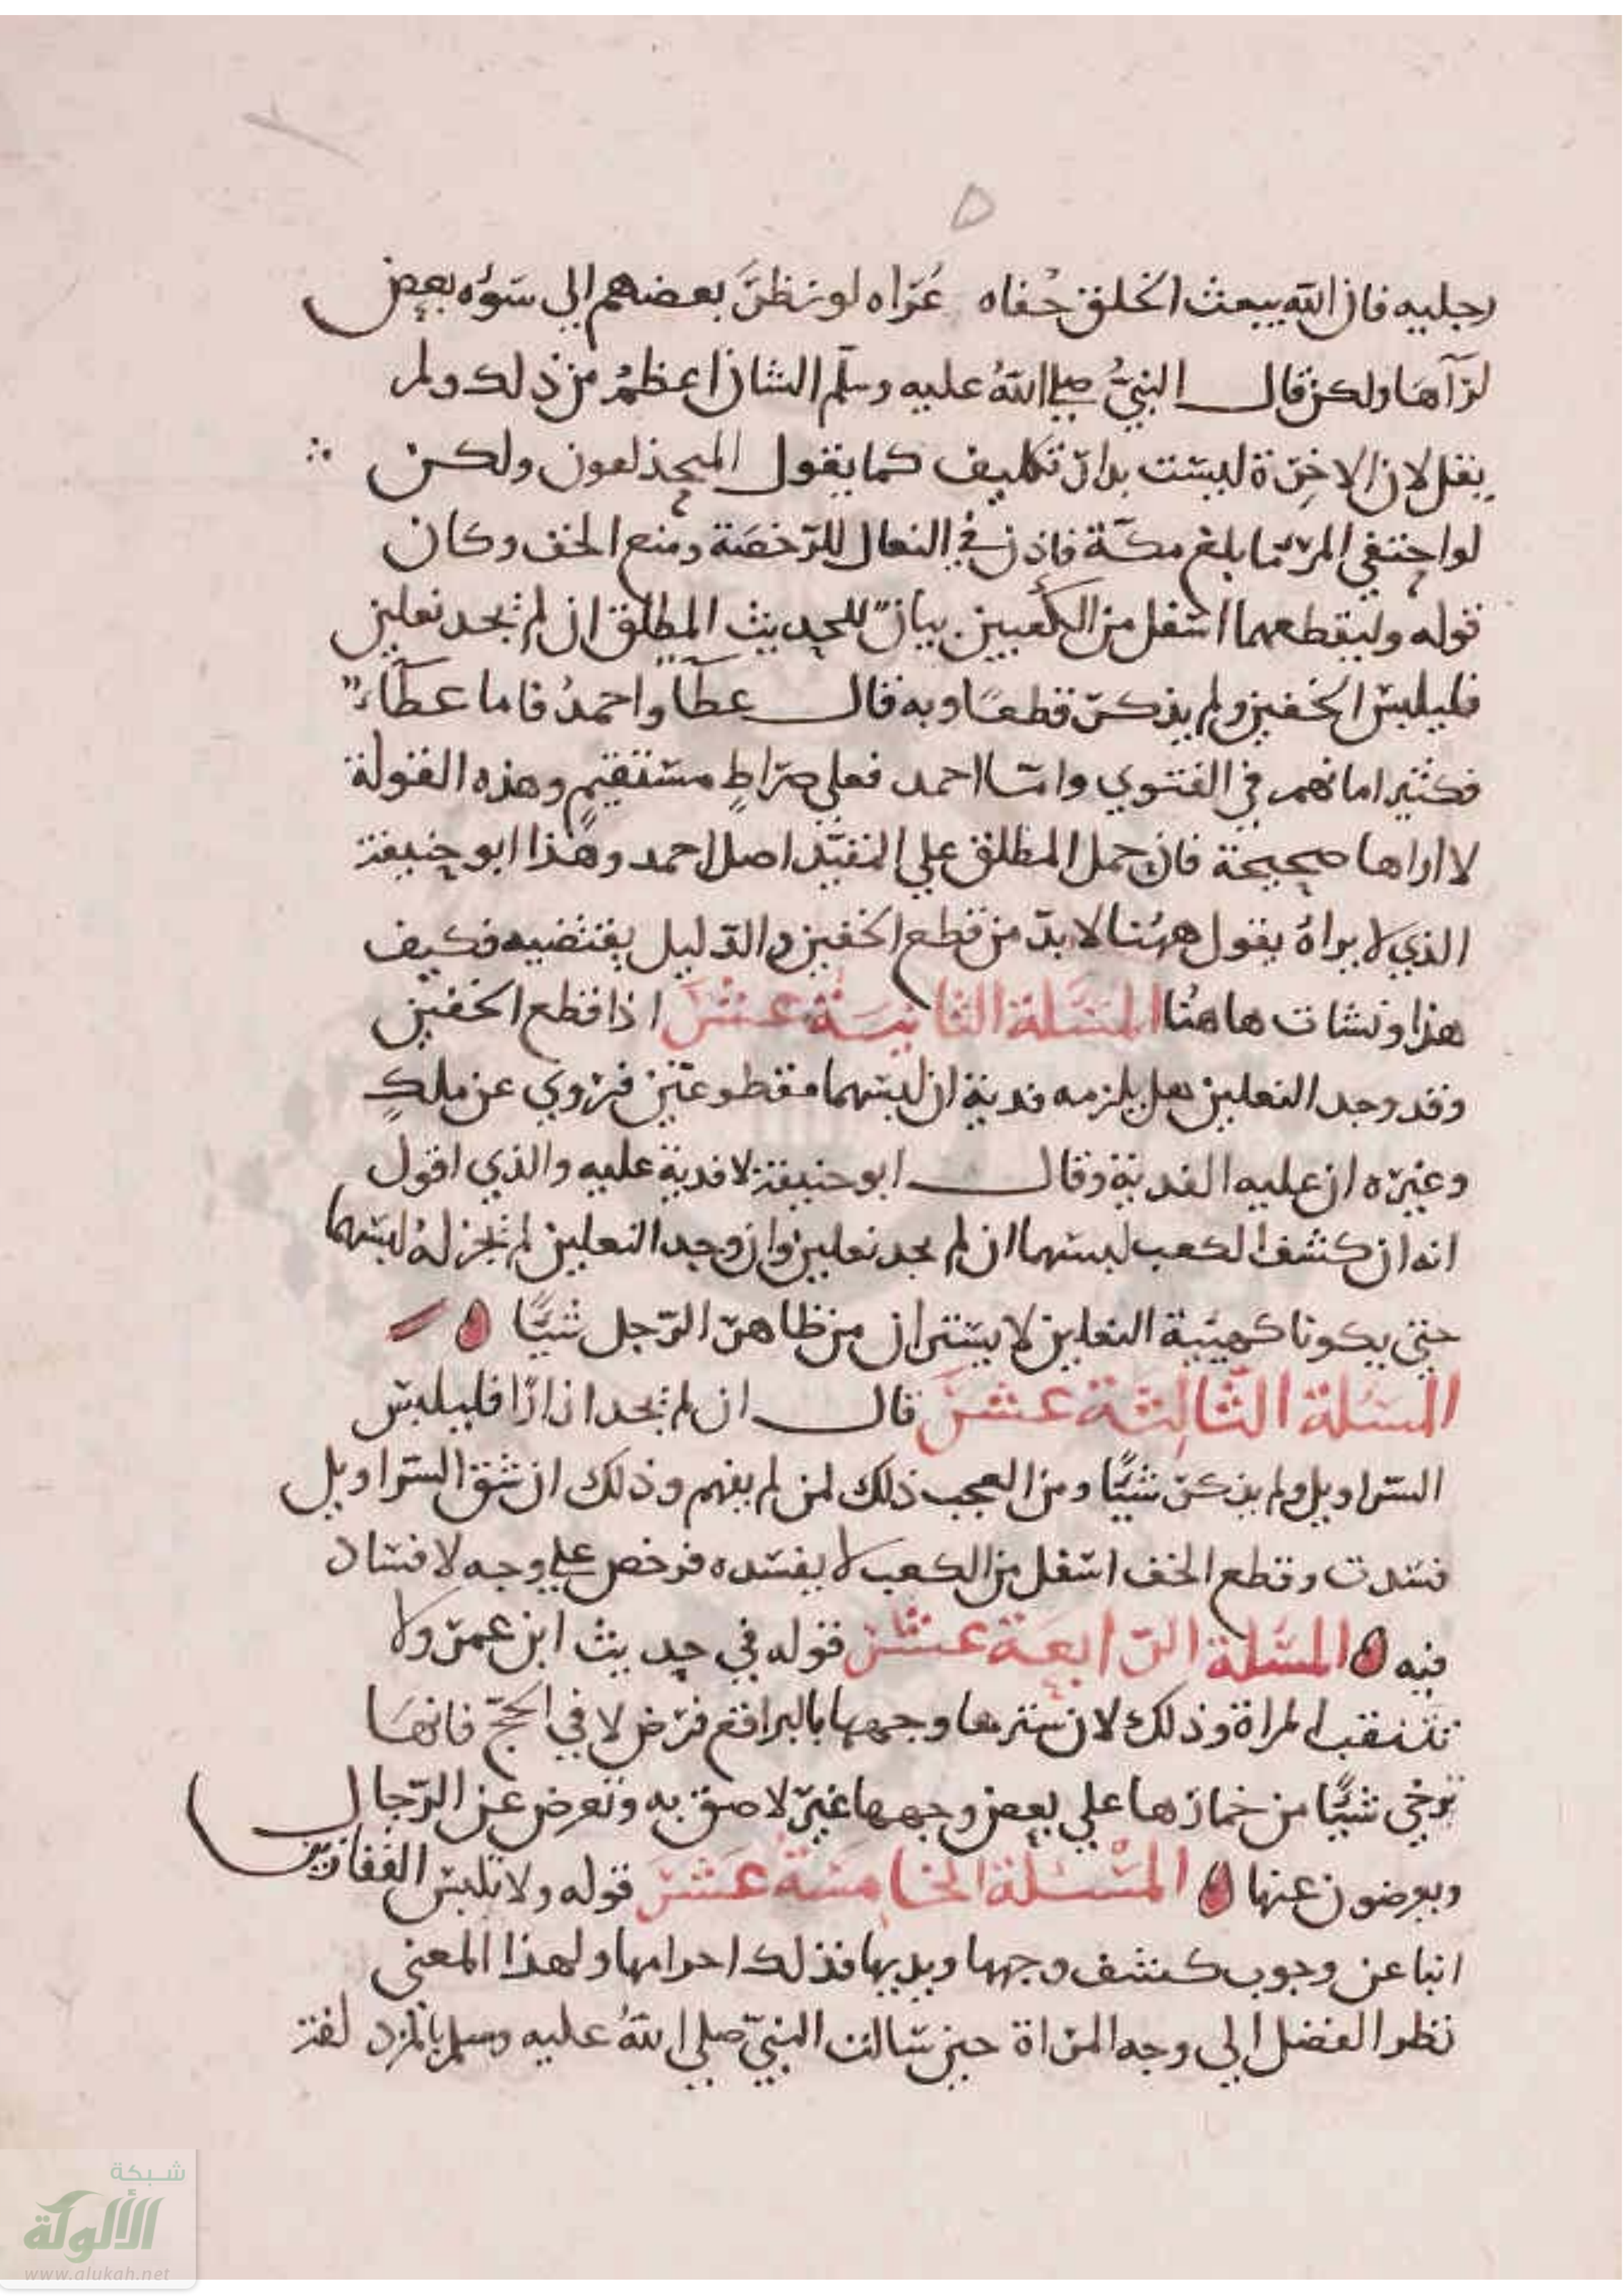 رجليه فان الله يبعث الخلق حُفاه عُرّاه لو نظرَ بعضهم الي سَوءه بعض
لرَآهَا ولكن قال النبيُّ صلي اللهُ عليه وسلّم الشان اعظمُ من ذلك ولم
يقل لان الاخِرَة ليسَت بدارّ تكليف كما يقول المبتدعون ولكن
لو احتفي المرءُ ما بلغ مكّة فاذن في النعال للرّخصَة ومنع الخف وكان
قوله وليقطعهما اسفل من الكعبين بيانٌ للحديث المطلق ان لم يجد نعلين
فليلبس الخفين ولم يذكر قطعًا وبه قال عطآ واحمدُ فاما عطآءٌ
فكثير امانهم في الفتوي وامّا احمد فعلي صرَاطٍ مستقيمٍ وهذه القولة
لا اراها صحيحة فان حمل المطلق علي المقيّد اصل احمد وهذا ابو حنيفة
الذي لا يراهُ يقول ههُنا لا بدّ من قطع الخفين والدّليل يقتضيه فكيف
هذا ونشات هاهنُا المسَئلة الثانيَة عشرَ اذا قطع الخفين
وقد وجد النعلين هل يلزمه فدية ان لبسَهما مقطوعَين فرُوي عن ملكٍ
وغيره ان عليه الفدية وقال ابو حنيفة لا فدية عليه والذي اقول
انه ان كشف الكعب لبسهما ان لم يجد نعلين وان وجد النعلين لم يجز لهُ لبسَهما
حتي يكونا كهيئة النعلين لا يستران من ظاهر الرّجل شيًا
المسَئلة الثّالِثة عشرَ قال ان لم يجد ازارًا فليلبس
السّراويل ولم يذكر شيئًا ومن العجب ذلك لمن لم يفهم وذلك ان شق السّراويل
فسَدت وقطع الخف اسَفل من الكعب لا يفسده فرخص علي وجه لا فسَاد
فيه المسَئلة الرّابعَة عشر قوله في حديث ابن عمر ولا
تتنقب المراة وذلك لان سترها وجهها بالبراقع فرض لا في الحجّ فانهَا
ترخي شيئًا من خمارها علي بعض وجهها غير لاصق به وتعرض عن الرّجال
ويعرضون عنها المسْئلة الخامسَة عشَر قوله ولا تلبس القفازين
انبا عن وجوب كشف وجهها ويديها فذلك احرامها ولهذا المعني
نظر الفضل الي وجه المراة حين سَالت النبيّ صلي اللهُ عليه وسلم
شبكة
الألوكة
www.alukah.net